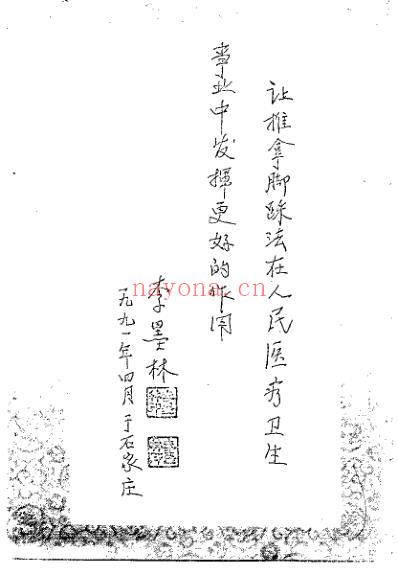 让推拿脚踩法在人民医疗卫生
事业中发挥更好的作用
李墨林
一九九一年四月于石家庄
nayona.cn